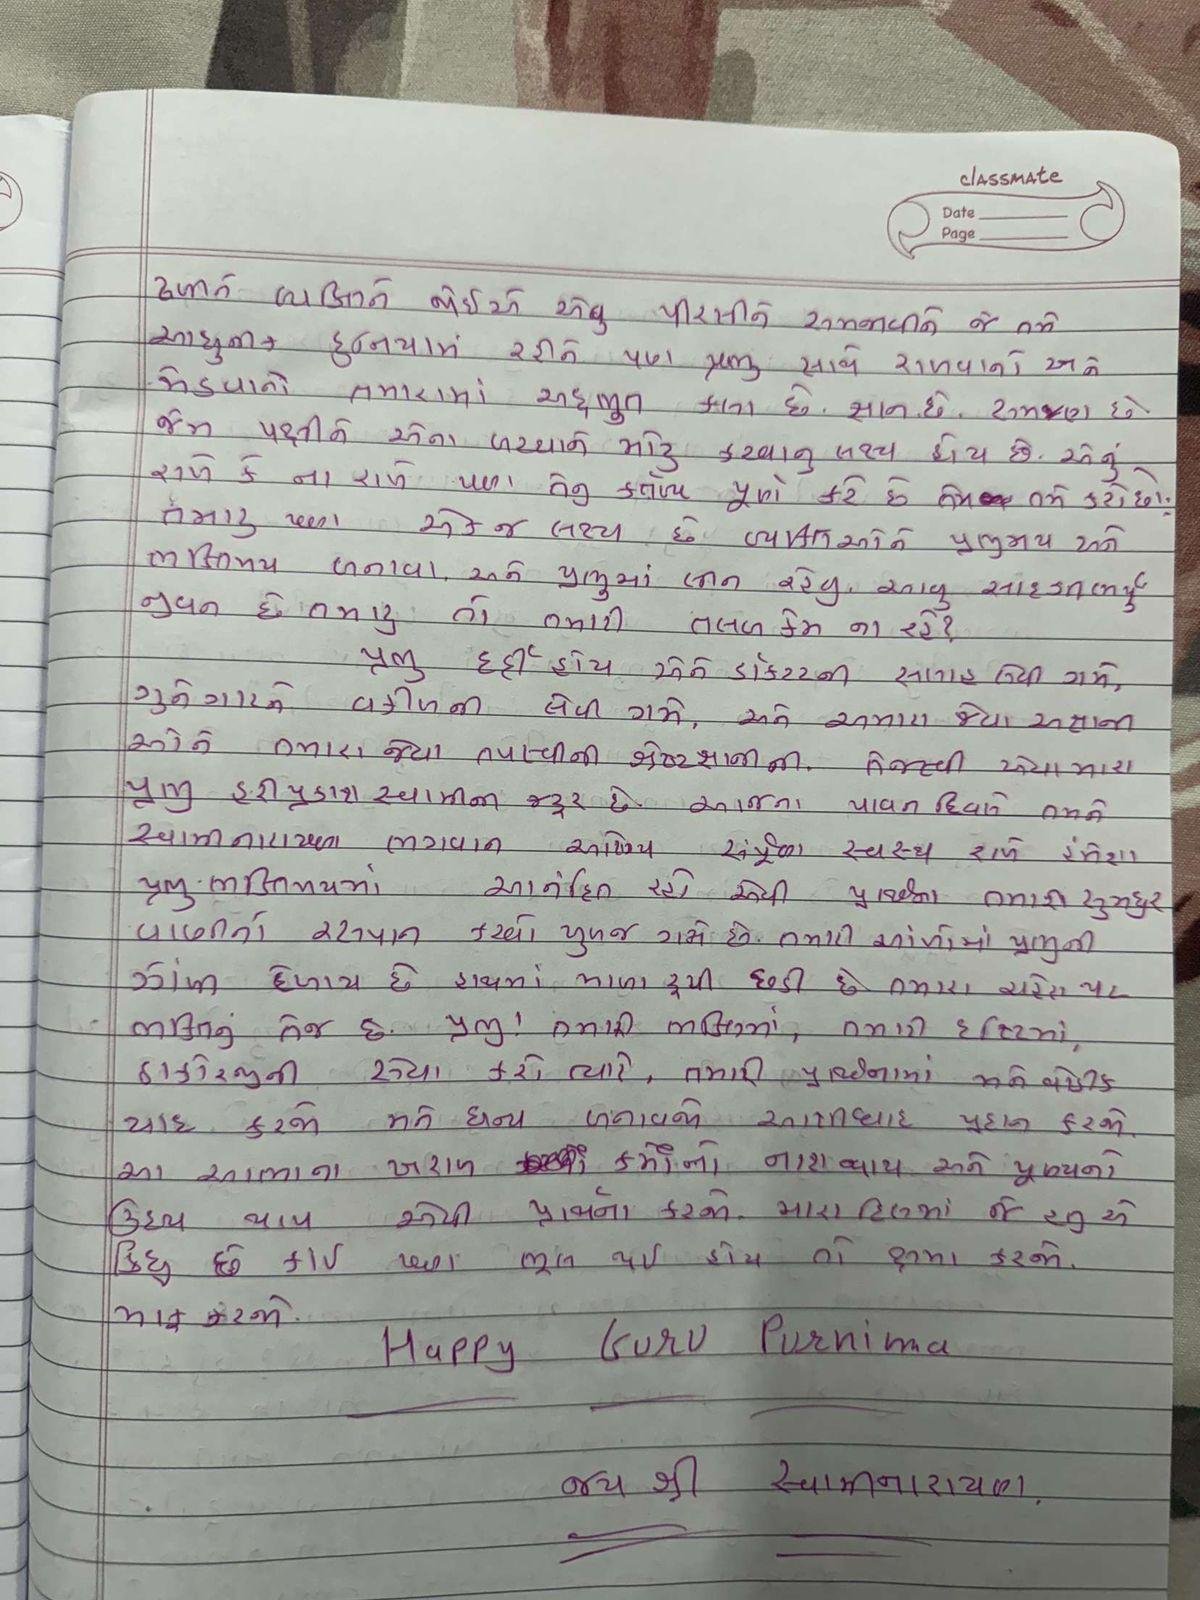 classmate
Date
Page
વ્યક્તિને જોઈએ એવુ પીરસીને સમજાવીને જે તમે
આધુનિક દુનિયામાં રહીને પણ પ્રભુ સાથે રાખવાનો અને
જોડવાનો તમારામાં અદ્ભુત કળા છે. જ્ઞાન છે. સમજણ છે.
જેમ પક્ષીને એના બચ્ચાને મોટુ કરવાનુ લક્ષ્ય હોય છે. એનું
રાખે કે ના રાખે પણ તેનુ કર્તવ્ય પૂર્ણ કરે છે તેમ તમે કરો છો.
તમારૂ પણ એક જ લક્ષ્ય છે વ્યક્તિઓને પ્રભુમય અને
ભક્તિમય બનાવવા. અને પ્રભુમાં લીન રહેવુ. આવુ સાદગીભર્યુ
જીવન છે તમારૂ તો તમારી તલબ કેમ ના રહે?
પ્રભુ દર્દી હોય એને ડોક્ટરની સલાહ લેવી ગમે,
ગુનેગારને વકીલની લેવી ગમે, અને અમારા જેવા અજ્ઞાની
ઓને તમારા જેવા તપસ્વીની જ્ઞાનીની. તેજસ્વી એવા મારા
પ્રભુ હરીપ્રકાશ સ્વામીની જરૂર છે. આજના પાવન દિવસે તમને
સ્વામીનારાયણ ભગવાન સંપૂર્ણ સ્વસ્થ રાખે હંમેશા
પ્રભુ ભક્તિમયમાં આનંદિત રહો એવી પ્રાર્થના તમારી સુમધુર
વાણીનો રસપાન કરવો ખુબજ ગમે છે. તમારી આંખોમાં પ્રભુની
ઝાંખી દેખાય છે હાથમાં માળા રૂપી છડી છે તમારા ચહેરા પર
ભક્તિનું તેજ છે. પ્રભુ! તમારી ભક્તિમાં, તમારી દ્રષ્ટિમાં,
ઠાકોરજીની સેવા કરો ત્યારે, તમારી પ્રાર્થનામાં મને
યાદ કરજો મને ધન્ય બનાવજો આશીર્વાદ પ્રદાન કરજો.
આ આત્માના ખરાબ કર્મોનો નાશ થાય અને પૂણ્યનો
ઉદય થાય એવી પ્રાર્થના કરજો. મારા દિલમાં જે હતુ એ
કિધુ છે કોઈ પણ ભૂલ થઈ હોય તો ક્ષમા કરજો.
માફ કરજો.
Happy Guru Purnima
જય શ્રી સ્વામીનારાયણ.